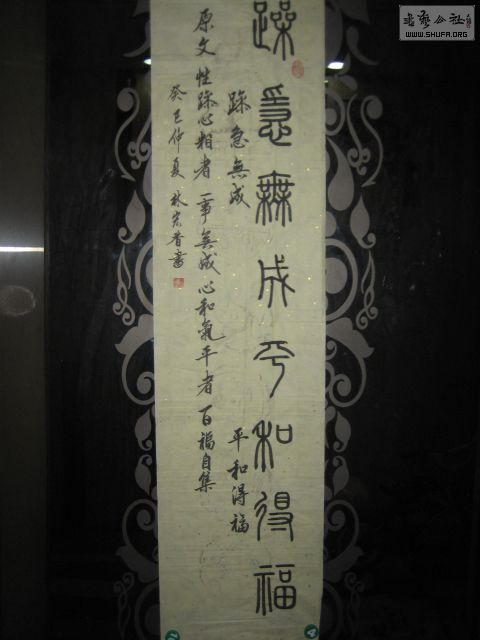 躁急無成平和得福
躁急無成
平和得福
原文 性躁心粗者一事無成心和氣平者百福自集
癸巳仲夏 林書
书艺公社
WWW.SHUFA.ORG